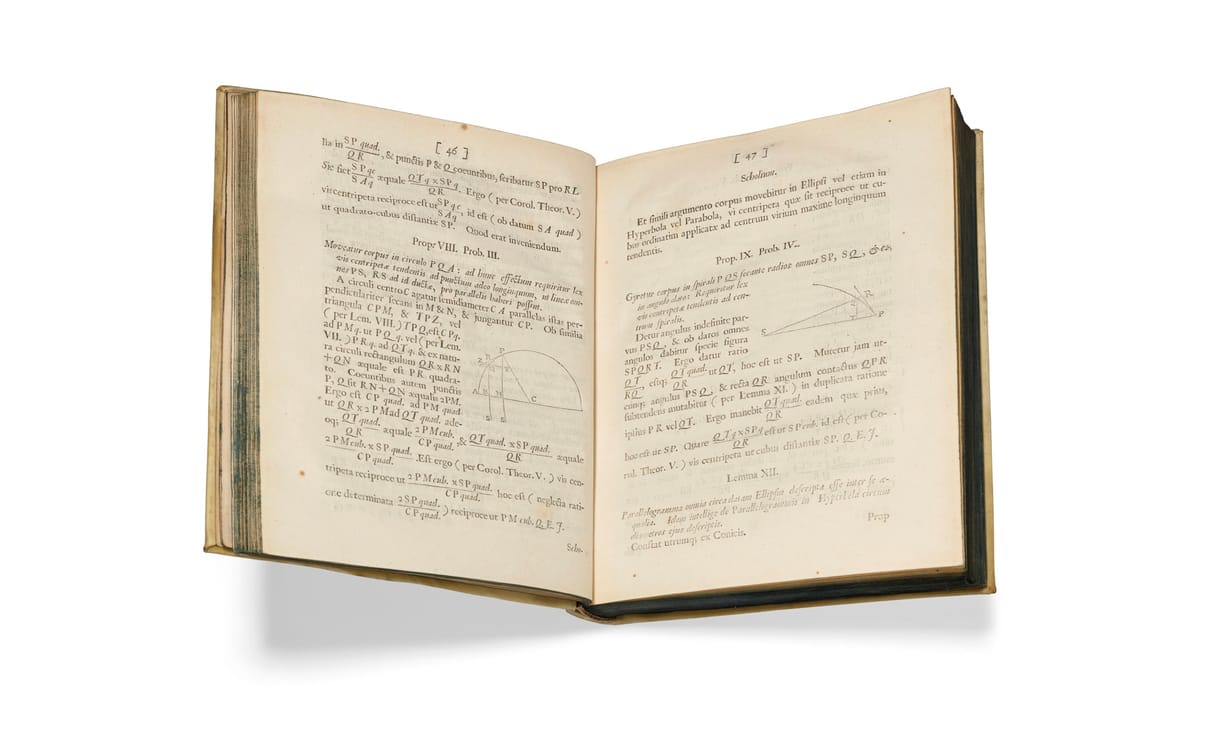 [ 46 ]
lia in SP quad./QR, & punctis P & Q coeuntibus, scribatur SP pro RL
Sic fiet SPqc/SAq æquale QTq x SPq./QR. Ergo (per Corol. Theor. V.)
vis centripeta reciproce est ut SPqc/SAq, id est ( ob datum SA quad )
ut quadrato-cubus distantiæ SP. Quod erat inveniendum.
Prop. VIII. Prob. III.
Moveatur corpus in circulo PQA: ad hunc effectum requiritur lex
vis centripetæ tendentis ad punctum adeo longinquum, ut lineæ om-
nes PS, RS ad id ductæ, pro parallelis haberi possint.
A circuli centro C agatur semidiameter CA parallelas istas per-
pendiculariter secans in M & N, & jungantur CP. Ob similia
triangula CPM, & TPZ, vel
( per Lem. VIII. ) TPQ, est CPq.
ad PMq. ut PQq. vel ( per Lem.
VII. ) PRq. ad QTq. & ex natu-
ra circuli rectangulum QR x RN
+ QN æquale est PR quadra-
to. Coeuntibus autem punctis
P, Q fit RN + QN æqualis 2PM.
Ergo est CP quad. ad PM quad.
ut QR x 2PM ad QT quad. ade-
oq; QT quad./QR æquale 2PM cub./CP quad., & QT quad. x SP quad./QR æquale
2PM cub. x SP quad./CP quad. Est ergo ( per Corol. Theor. V. ) vis cen-
tripeta reciproce ut 2PM cub. x SP quad./CP quad. hoc est ( neglecta rati-
one determinata 2SP quad./CP quad. ) reciproce ut PM cub. Q. E. I.
Scho-
Z R P
Q
T
A M N C
S S
[ 47 ]
Scholium.
Et simili argumento corpus movebitur in Ellipsi vel etiam in
Hyperbola vel Parabola, vi centripeta quæ sit reciproce ut cu-
bus ordinatim applicatæ ad centrum virium maxime longinquum
tendentis.
Prop. IX. Prob. IV.
Gyretur corpus in spirali PQS secante radios omnes SP, SQ, &c.
in angulo dato: Requiritur lex
vis centripetæ tendentis ad cen-
trum spiralis.
Detur angulus indefinite par-
vus PSQ, & ob datos omnes
angulos dabitur specie figura
SPQRT. Ergo datur ratio
QT/RQ, estq; QT quad./QR ut QT, hoc est ut SP. Mutetur jam ut-
cunq; angulus PSQ, & recta QR angulum contactus QPR
subtendens mutabitur ( per Lemma XI. ) in duplicata ratione
ipsius PR vel QT. Ergo manebit QT quad./QR eadem quæ prius,
hoc est ut SP. Quare QTq x SPq/QR est ut SP cub. id est ( per Co-
rol. Theor. V. ) vis centripeta ut cubus distantiæ SP. Q. E. I.
Lemma XII.
Parallelogramma omnia circa datam Ellipsin descripta esse inter se æ-
qualia. Idem intellige de Parallelogrammis in Hyperbola circum
diametros ejus descriptis.
Constat utrumq; ex Conicis.
Prop
S Q R T P